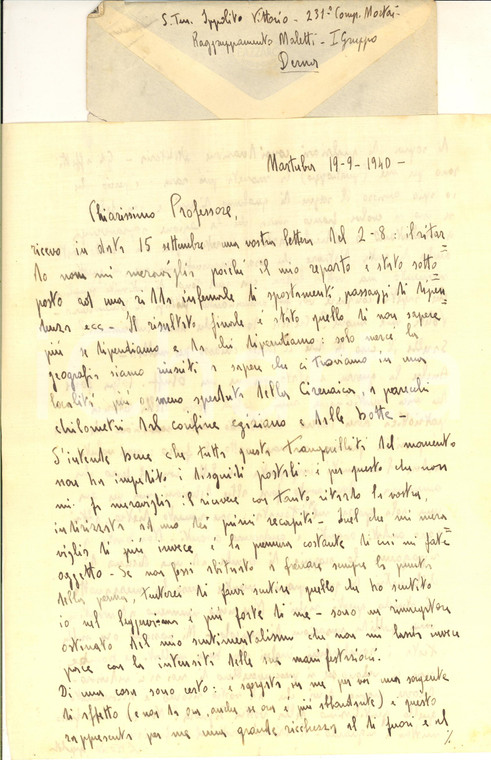 S. Ten. Ippolito Vittorio - 231ª Comp. Mortai
Raggruppamento Maletti - I Gruppo
Derna
Martuba 19-9-1940-
Chiarissimo Professore,
ricevo in data 15 settembre una vostra lettera del 2-8: il ritar=
do non mi meraviglia poiché il mio reparto è stato sotto=
posto ad una ridda infernale di spostamenti, passaggi di dipen=
denza ecc- Il risultato finale è stato quello di non sapere
più se dipendiamo e da chi dipendiamo: solo mercé la
geografia siamo riusciti a sapere che ci troviamo in una
località più o meno sperduta della Cirenaica, a parecchi
chilometri dal confine egiziano e dalle botte-
S'intende bene che tutta questa tranquillità del momento
non ha impedito i disguidi postali: è per questo che non
mi fa meraviglia il ricevere con tanto ritardo la vostra,
indirizzata ad uno dei primi recapiti- Quel che mi mera
viglia di più invece è la premura costante di cui mi fate=
oggetto- Se non fossi abituato a frenare sempre la punta
della penna, tenterei di farvi sentire quello che ho sentito
io nel leggervi: ma è più forte di me- sono un rinnegatore
ostinato del mio sentimentalismo che non mi lascia invece
pace con la intensità delle sue manifestazioni.
Di una cosa sono certo: è sgorgata in me per voi una sorgente
di affetto (e non da ora, anche se ora è più abbondante) e questo
rappresenta per me una grande ricchezza al di fuori e al
./.